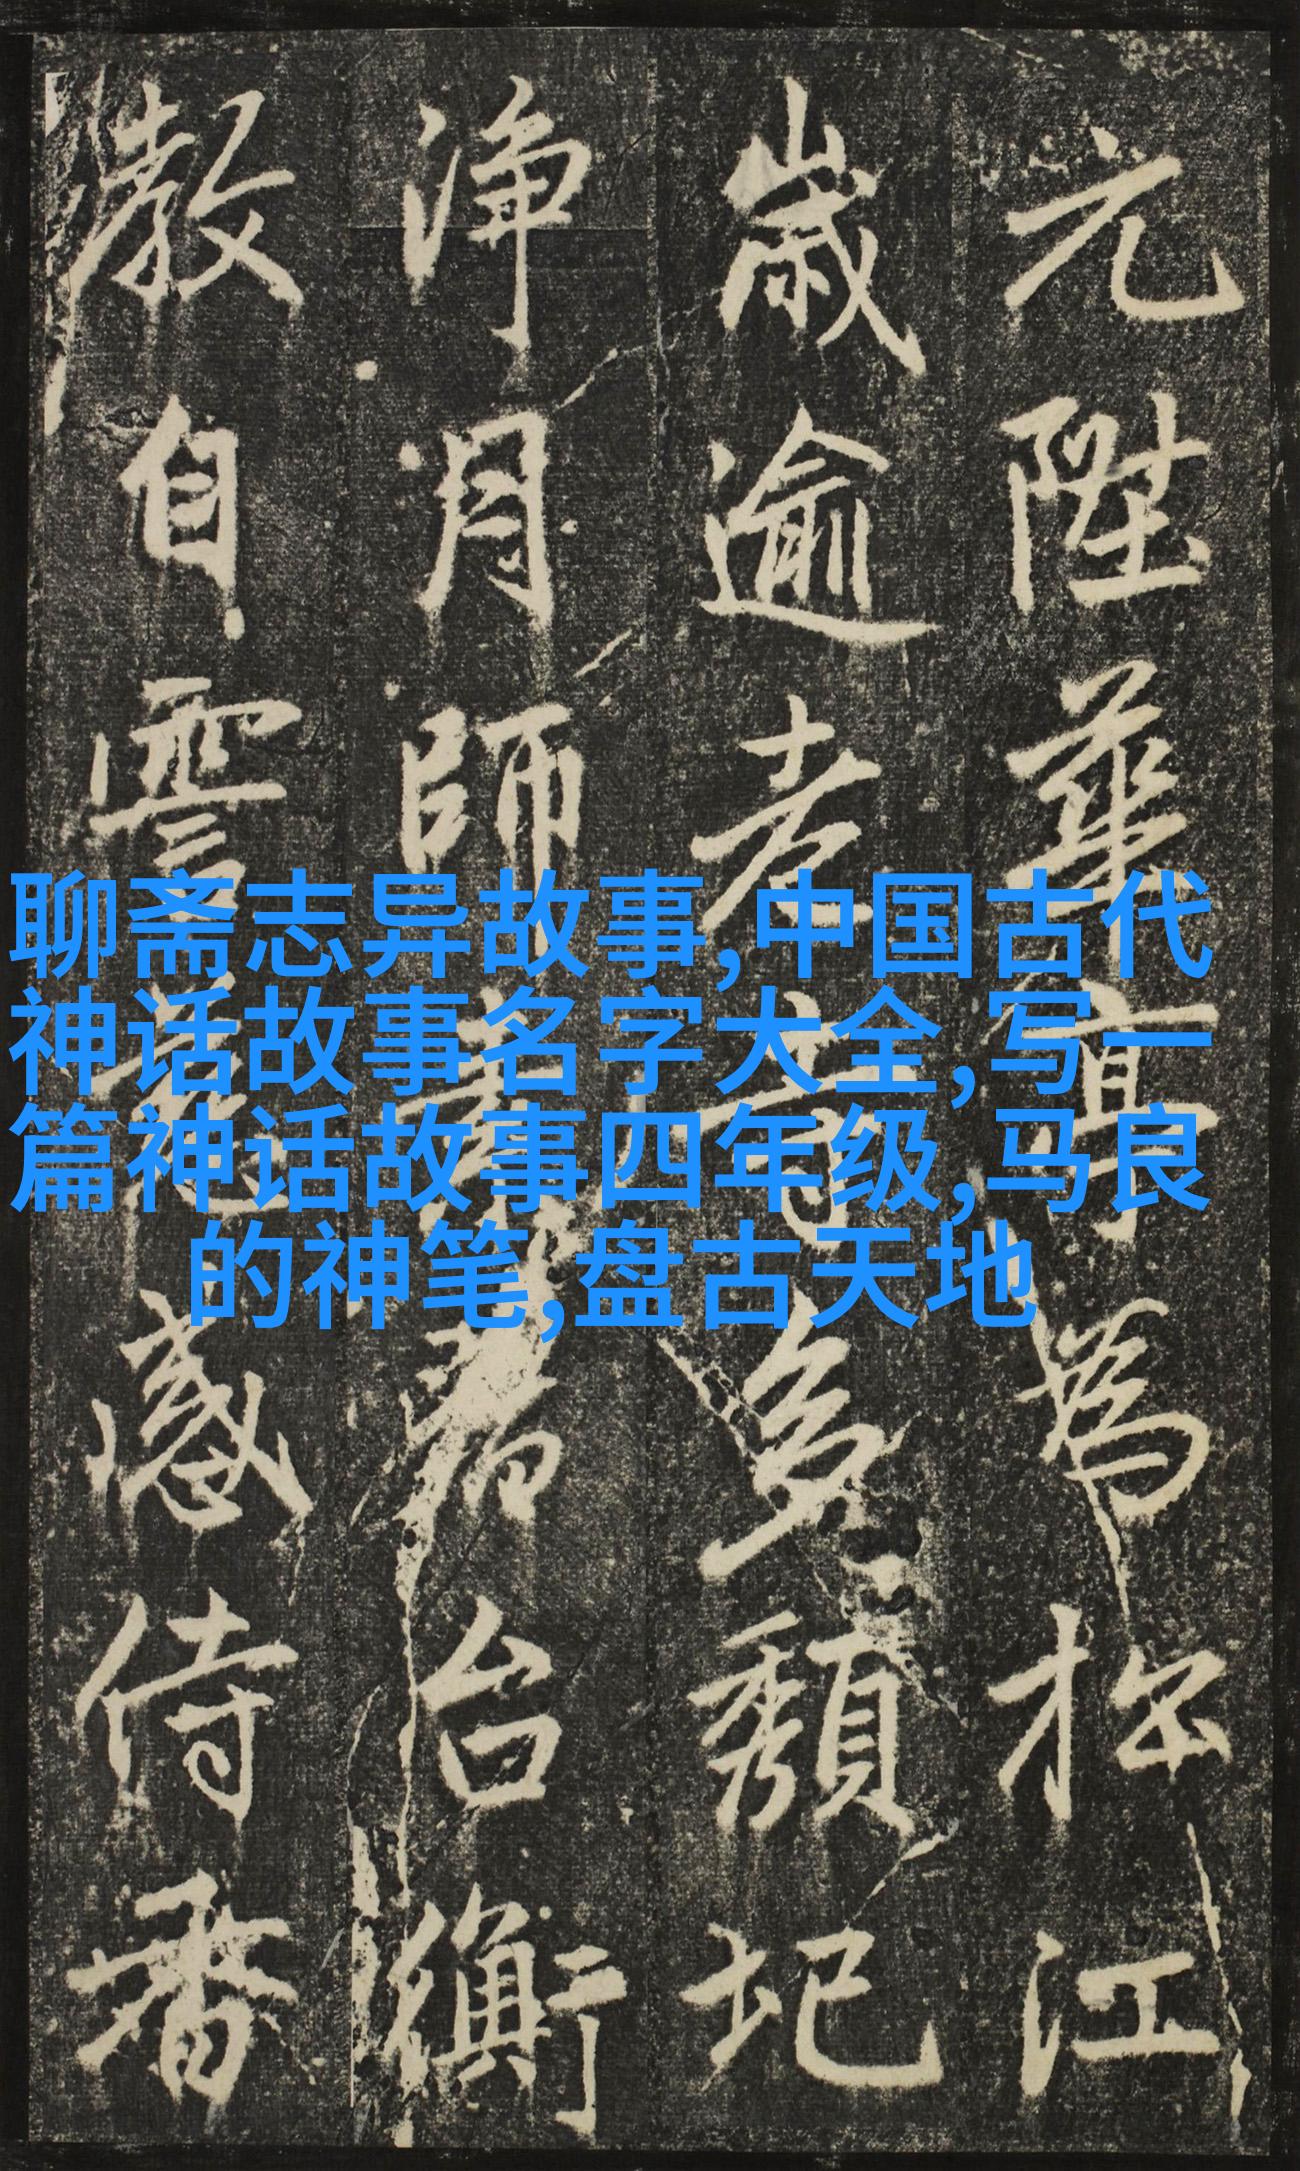 聊斋志异故事,中国古代
神话故事名字大全,写一
篇神话故事四年级,马良
的神笔,盘古天地
元陞華為於江
歲逾老多頹圮
淨月師台衡
教自感侍香